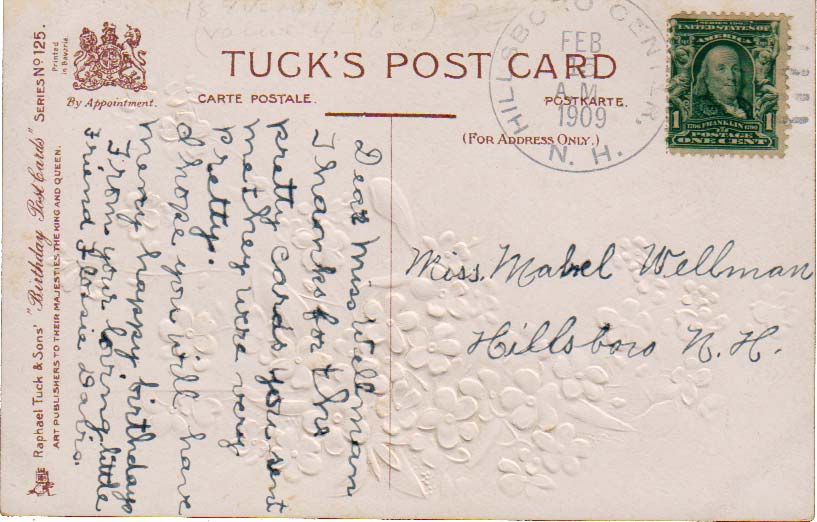 TUCK'S POST CARD
CARTE POSTALE.
POSTKARTE.
(FOR ADDRESS ONLY.)
By Appointment.
Printed
in Bavaria.
Raphael Tuck & Sons' "Birthday Post Cards" SERIES No 125.
ART PUBLISHERS TO THEIR MAJESTIES THE KING AND QUEEN.
HILLSBORO CENTER,
FEB
A.M
1909
N. H.
SERIES 1902
UNITED STATES OF
AMERICA
1706 FRANKLIN 1790
1 POSTAGE 1
ONE CENT
Dear Miss Wellman
Thanks for the
pretty cards you sent
me they were very
pretty.
I hope you will have
many happy birthdays
From your loving little
friend
Miss. Mabel Wellman
Hillsboro N. H.